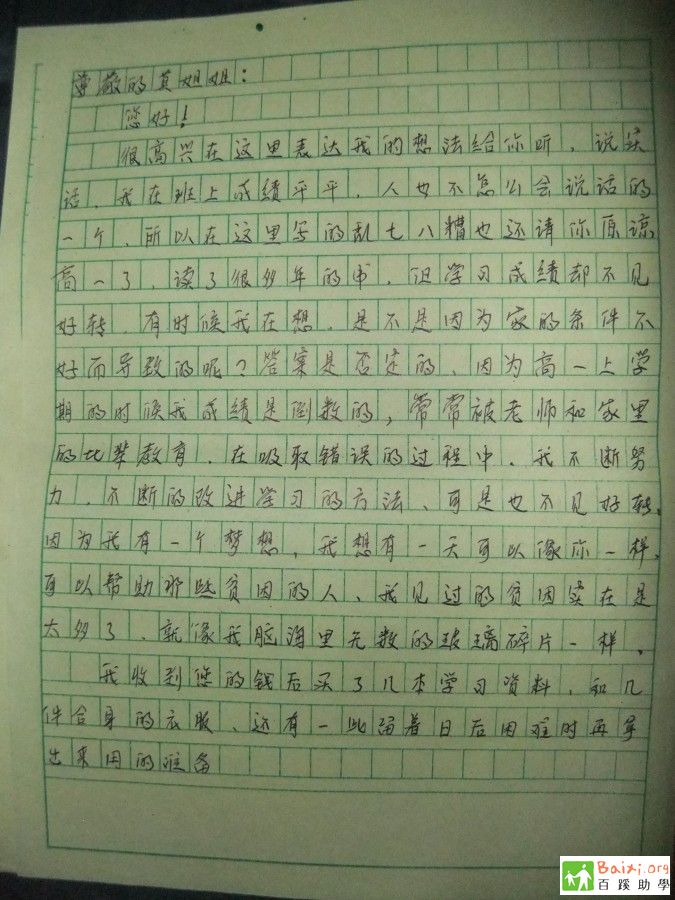 尊敬的真姐姐：
您好！
很高兴在这里表达我的想法给你听，说实
话，我在班上成绩平平，人也不怎么会说话的
一个，所以在这里写的乱七八糟也还请你原谅
高一了，读了很多年的书，但学习成绩却不见
好转，有时候我在想，是不是因为家的条件不
好而导致的呢？答案是否定的，因为高一上学
期的时候我成绩是倒数的，常常被老师和家里
的长辈教育，在吸取错误的过程中，我不断努
力，不断的改进学习的方法，可是也不见好转，
因为我有一个梦想，我想有一天可以像你一样，
可以帮助那些贫困的人，我见过的贫困实在是
太多了，就像我脑海里无数的玻璃碎片一样，
我收到您的钱后买了几本学习资料，和几
件合身的衣服，还有一些留着日后困难时再拿
出来用的准备
Baixi.org
百蹊助學